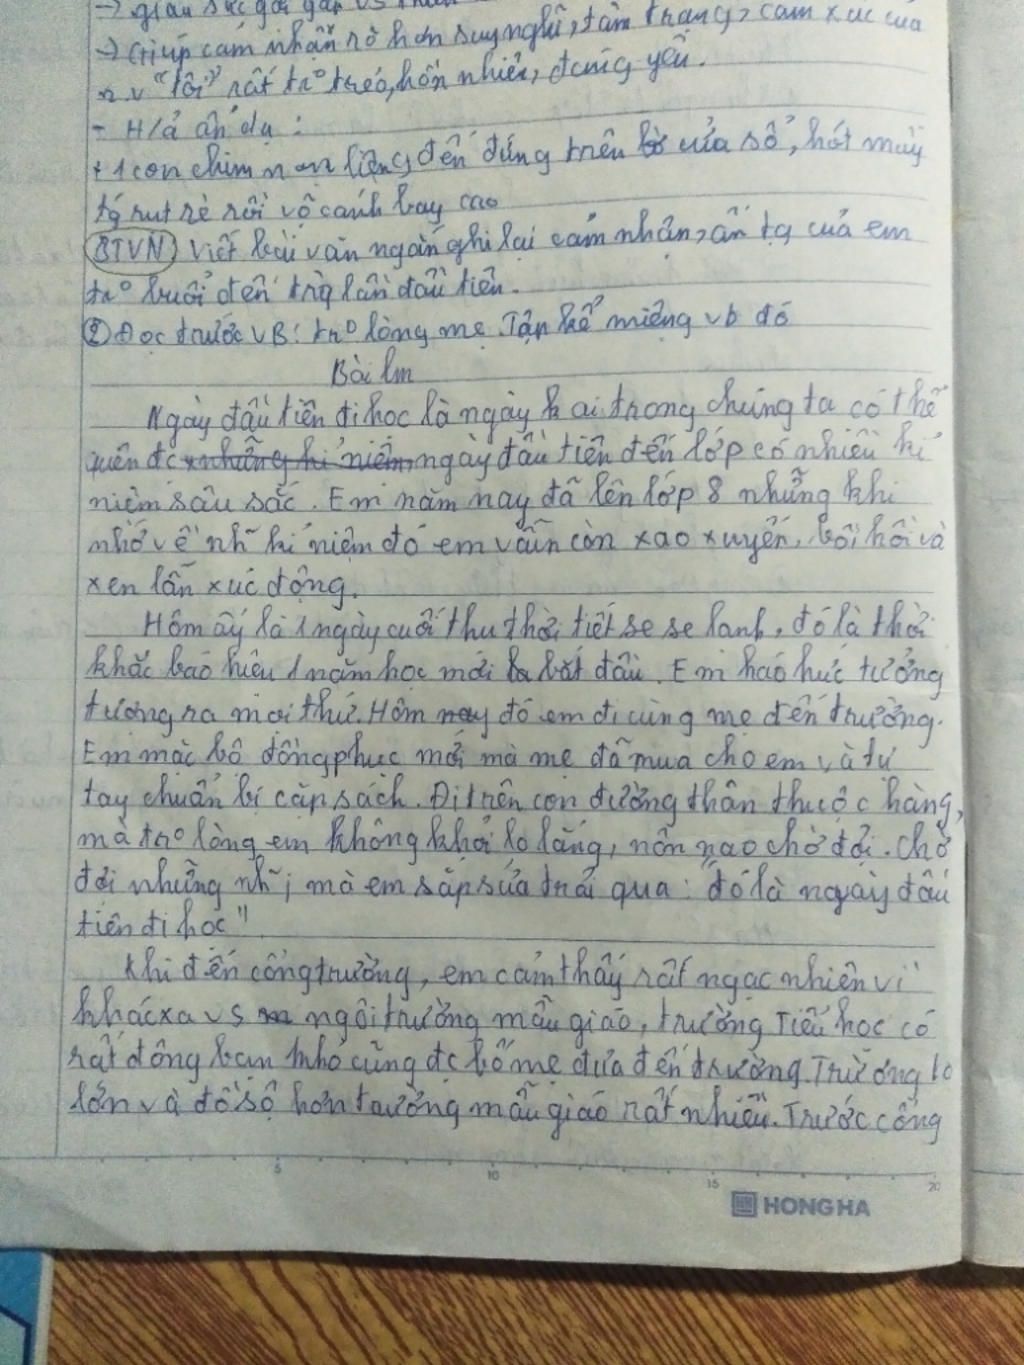 → giàu sức gợi
→ Giúp cảm nhận rõ hơn suy nghĩ, tâm trạng, cảm xúc của
n.v "tôi" rất tro trẻo, hồn nhiên, đáng yêu.
- H/ả ẩn dụ :
+ 1 con chim non liệng đến đứng trên bờ cửa sổ, hót mấy
tg rụt rè rồi vỗ cánh bay cao
BTVN) Viết bài văn ngắn ghi lại cảm nhận, ấn tg của em
tro buổi đến trg lần đầu tiên.
② Đọc trước VB: tro lòng mẹ. Tập kể miệng vb đó
Bài lm
Ngày đầu tiên đi học là ngày k ai trong chúng ta có thể
quên đc những kỉ niệm, ngày đầu tiên đến lớp có nhiều kỉ
niệm sâu sắc. Em năm nay đã lên lớp 8 nhưng khi
nhớ về nh~ kỉ niệm đó em vẫn còn xao xuyến, bồi hồi và
xen lẫn xúc động.
Hôm ấy là 1 ngày cuối thu thời tiết se se lạnh, đó là thời
khắc báo hiệu 1 năm học mới bắt đầu. Em háo hức tưởng
tượng ra mọi thứ. Hôm nay đó em đi cùng mẹ đến trường.
Em mặc bộ đồng phục mới mà mẹ đã mua cho em và tự
tay chuẩn bị cặp sách. Đi trên con đường thân thuộc hàng,
mà tro lòng em không khỏi lo lắng, nôn nao chờ đợi. Chờ
đợi những mà em sắp sửa trải qua: "đó là ngày đầu
tiên đi học"
Khi đến cổng trường, em cảm thấy rất ngạc nhiên vì
khác xa vs ngôi trường mẫu giáo, trường Tiểu học có
rất đông bạn nhỏ cũng đc bố mẹ đưa đến trường. Trường to
lớn và đồ sộ hơn trường mẫu giáo rất nhiều. Trước cổng
5 10 15 20
HONG HA